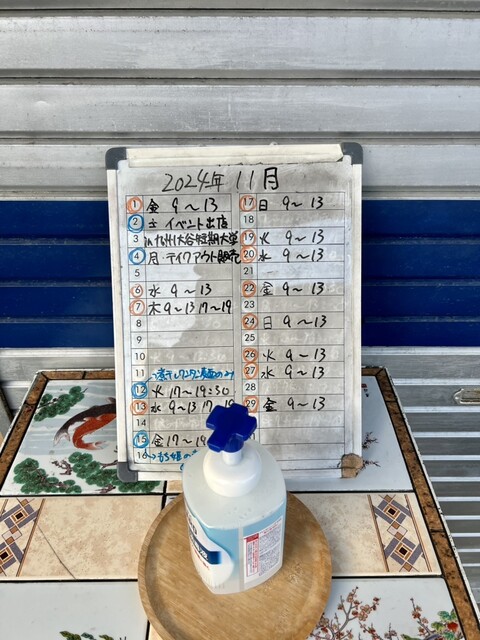 2024年 11月
1 金 9〜13
2 土 イベント出店
3 in 九州大谷短期大学
4 月 テイクアウト販売
5
6 水 9〜13
7 木 9〜13 17〜19
8
9
10
11
12 火 17〜19:30
13 水 9〜13 17〜19
15 金 17〜19
16
17 日 9〜13
18
19 火 9〜13
20 水 9〜13
21
22 金 9〜13
23
24 日 9〜13
25
26 火 9〜13
27 水 9〜13
28
29 金 9〜13